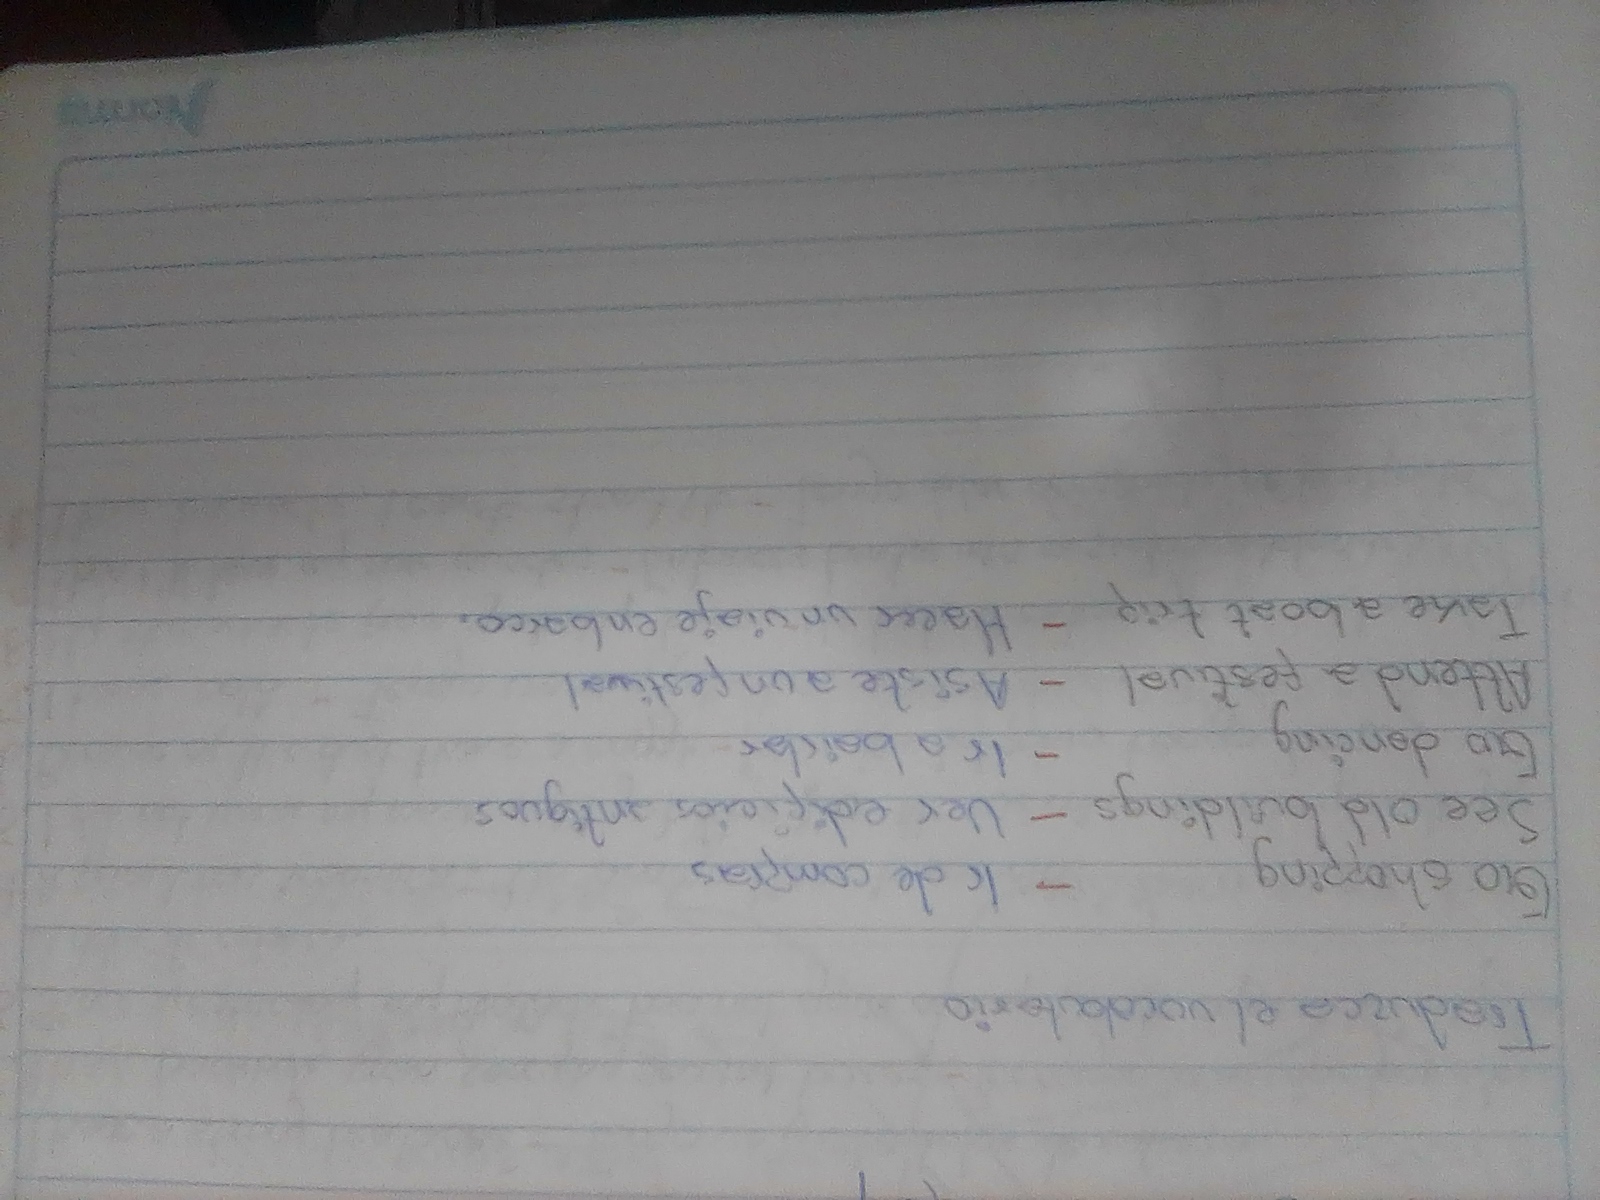 Traduzca el vocabulario
Go shopping - Ir de compras
See old buildings - Ver edificios antiguos
Go dancing - Ir a bailar
Attend a festival - Asiste a un festival
Take a boat trip - Hacer un viaje en barco.
Norma